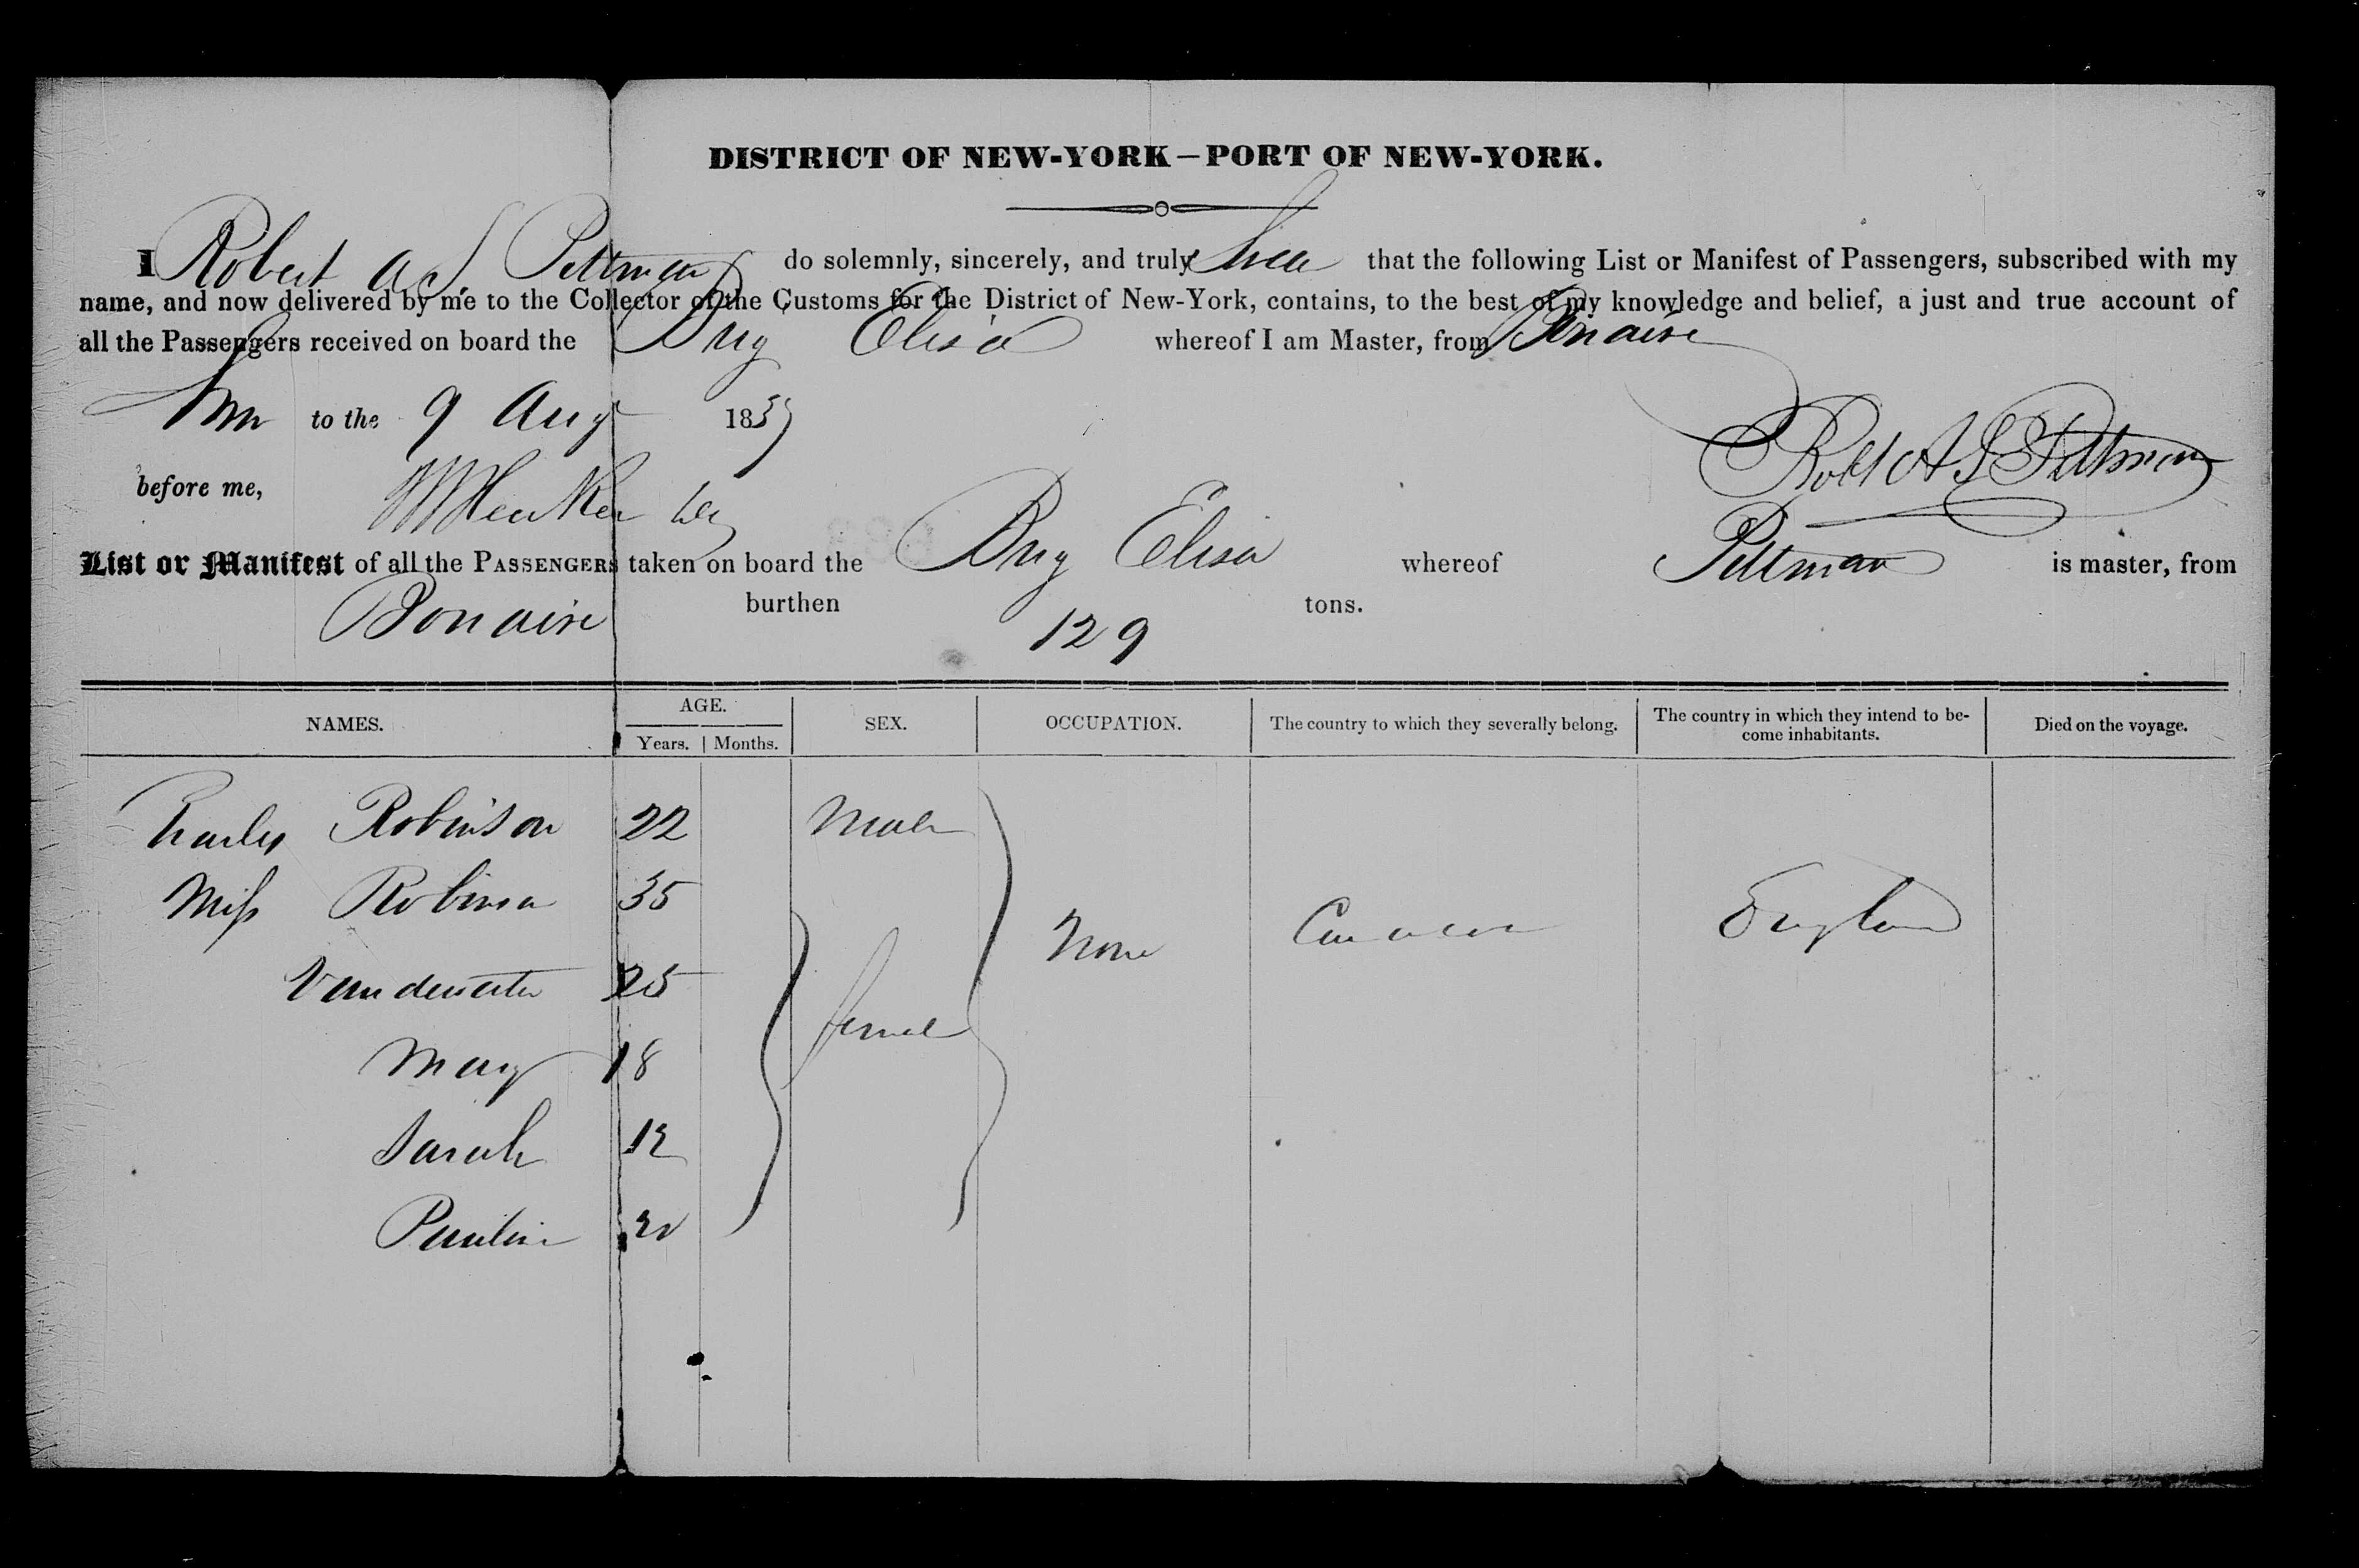 DISTRICT OF NEW-YORK—PORT OF NEW-YORK.
I Robert A. S. Pittman do solemnly, sincerely, and truly that the following List or Manifest of Passengers, subscribed with my
name, and now delivered by me to the Collector of the Customs for the District of New-York, contains, to the best of my knowledge and belief, a just and true account of
all the Passengers received on board the Brig Elisa whereof I am Master, from Bonaire
to the 9 Aug 18
before me,
Robt A S Pittman
List or Manifest of all the PASSENGERS taken on board the Brig Elisa whereof Pittman is master, from
Bonaire burthen 129 tons.
NAMES. AGE. SEX. OCCUPATION. The country to which they severally belong. The country in which they intend to be-
come inhabitants. Died on the voyage.
Years. Months.
Charles Robinson 22 Male
Miss Robinson 35
None England
Vandewater 25
female
Mary 18
Sarah 12